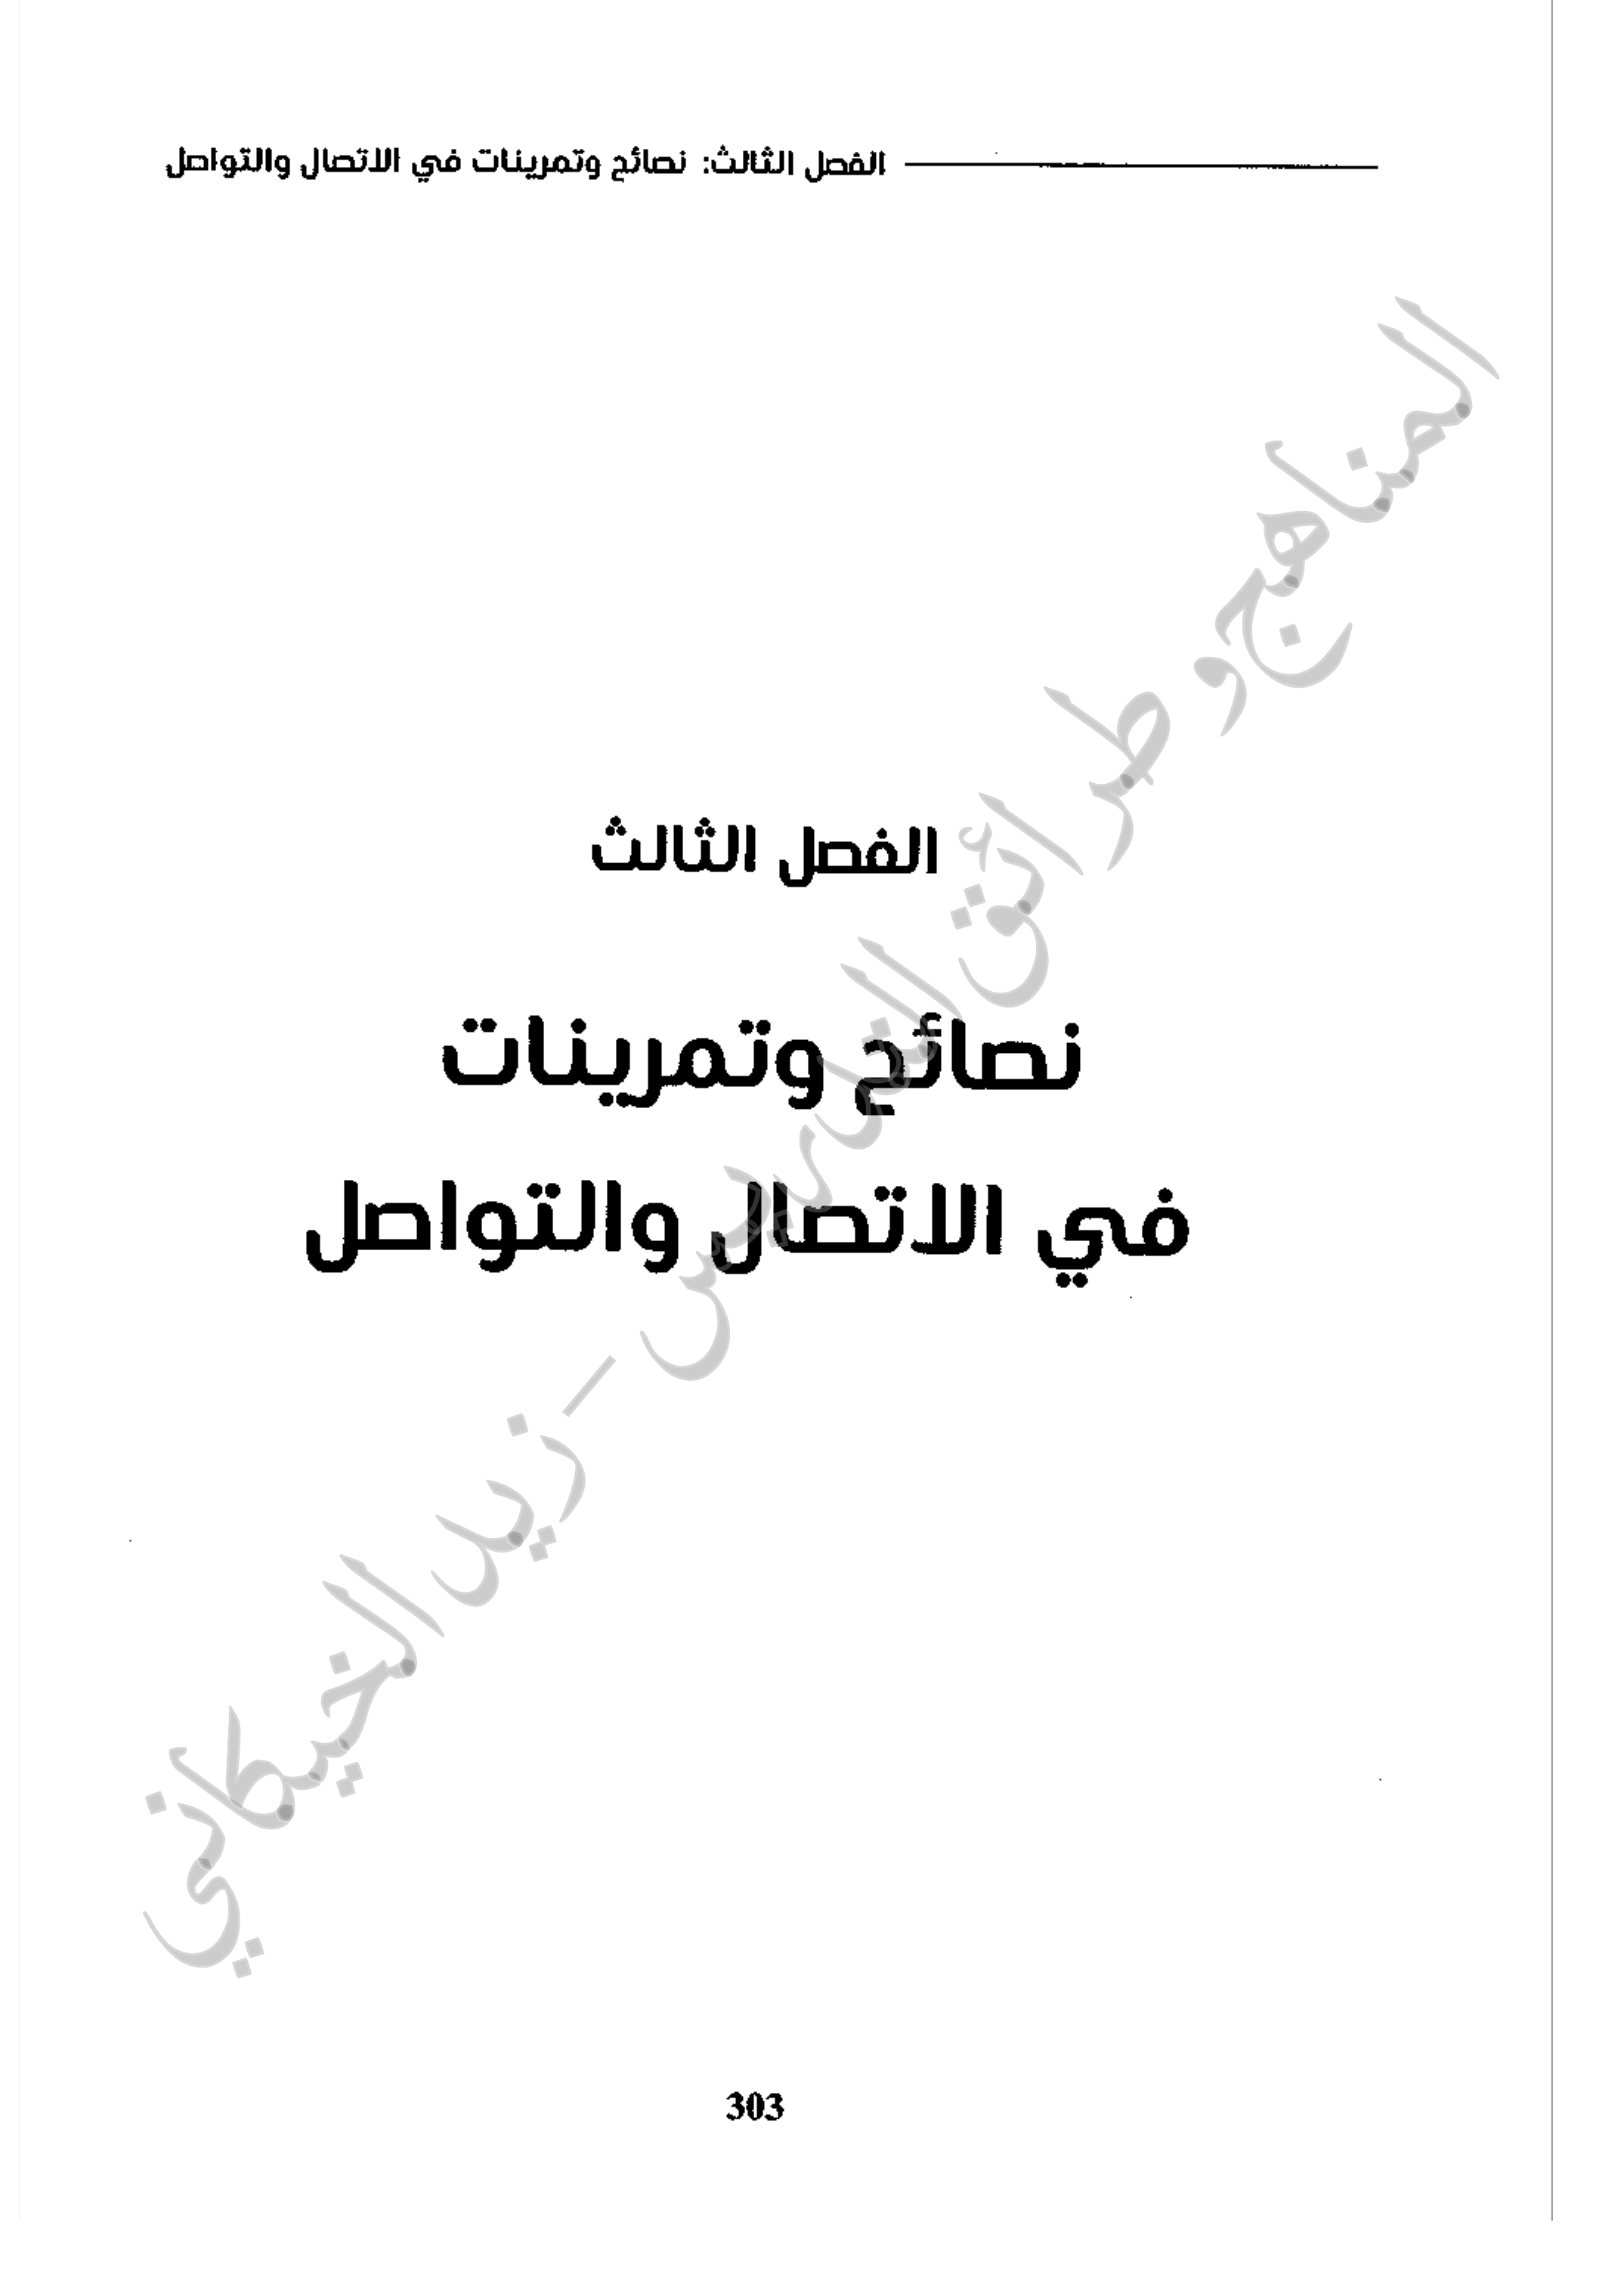 الفصل الثالث: نصائح وتمرينات في الاتصال والتواصل
الفصل الثالث
نصائح وتمرينات
في الاتصال والتواصل
المناهج و طرائق التدريس - زيد الخيكاني
303